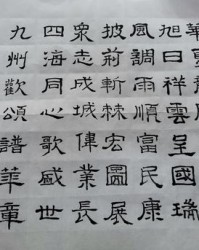 旭日祥雲呈國瑞
風調雨順富民康
披荊斬棘宏圖展
眾志成城偉業長
四海同心歌盛世
九州歡頌譜華章